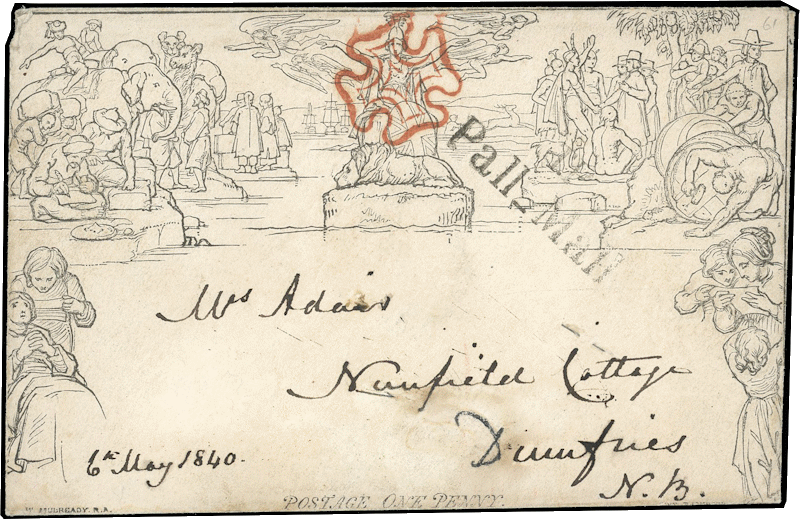 61
Pall-Mall
Mrs Adair
Nunfield Cottage
Dumfries
N.B.
6th May 1840.
POSTAGE ONE PENNY.
W. MULREADY. R.A.